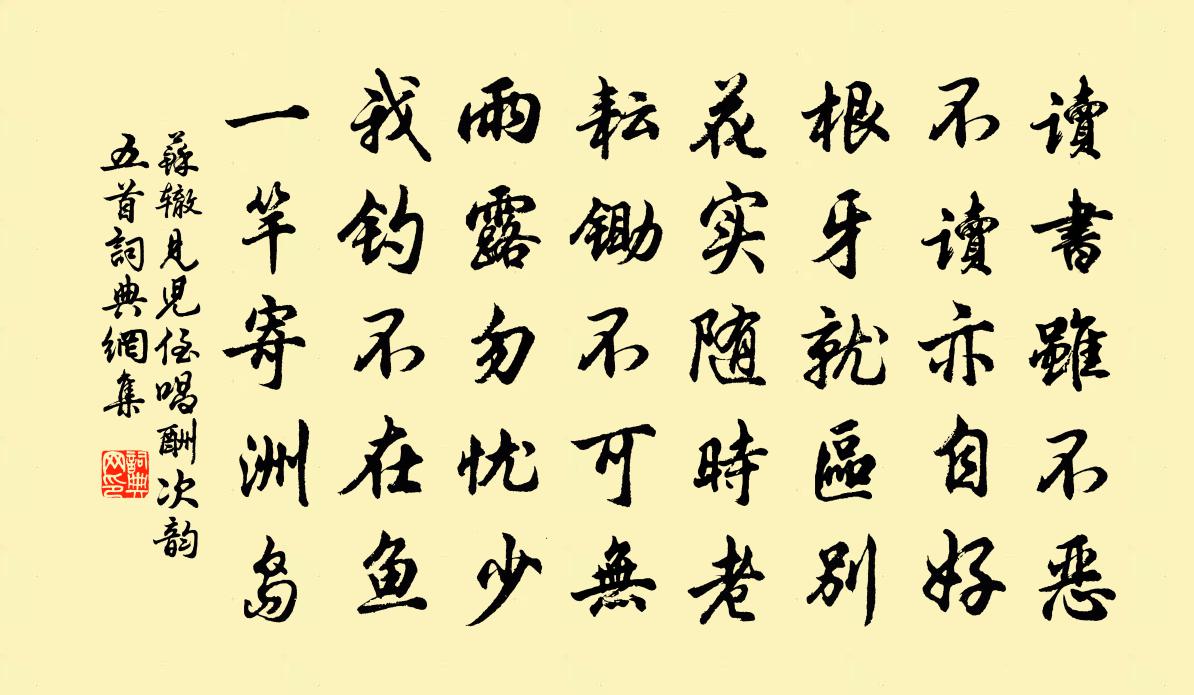 讀書雖不惡
不讀亦自好
根牙就區别
花实随時老
耘鋤不可無
雨露勿忧少
我钓不在鱼
一竿寄洲岛
蘇辙見児侄唱酬次韵
五首詞典網集
詞典
网印